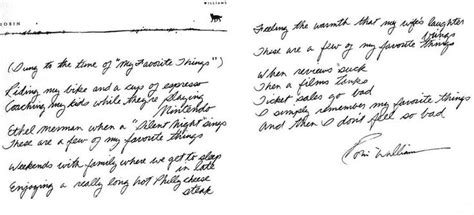 ROBIN
WILLIAMS
(Sung to the tune of "my Favorite Things")
Riding my bike and a cup of espresso
Coaching my kids while they're playing
Nintendo
Ethel Merman when a "Silent Night" sings
These are a few of my favorite things
Weekends with family where we get to sleep
in late
Enjoying a really long hot Philly cheese
steak
Feeling the warmth that my wife's laughter
brings
These are a few of my favorite things
When reviews suck
When a films tanks
Ticket sales go bad
I simply remember my favorite things
And then I don't feel so bad
Robin Williams